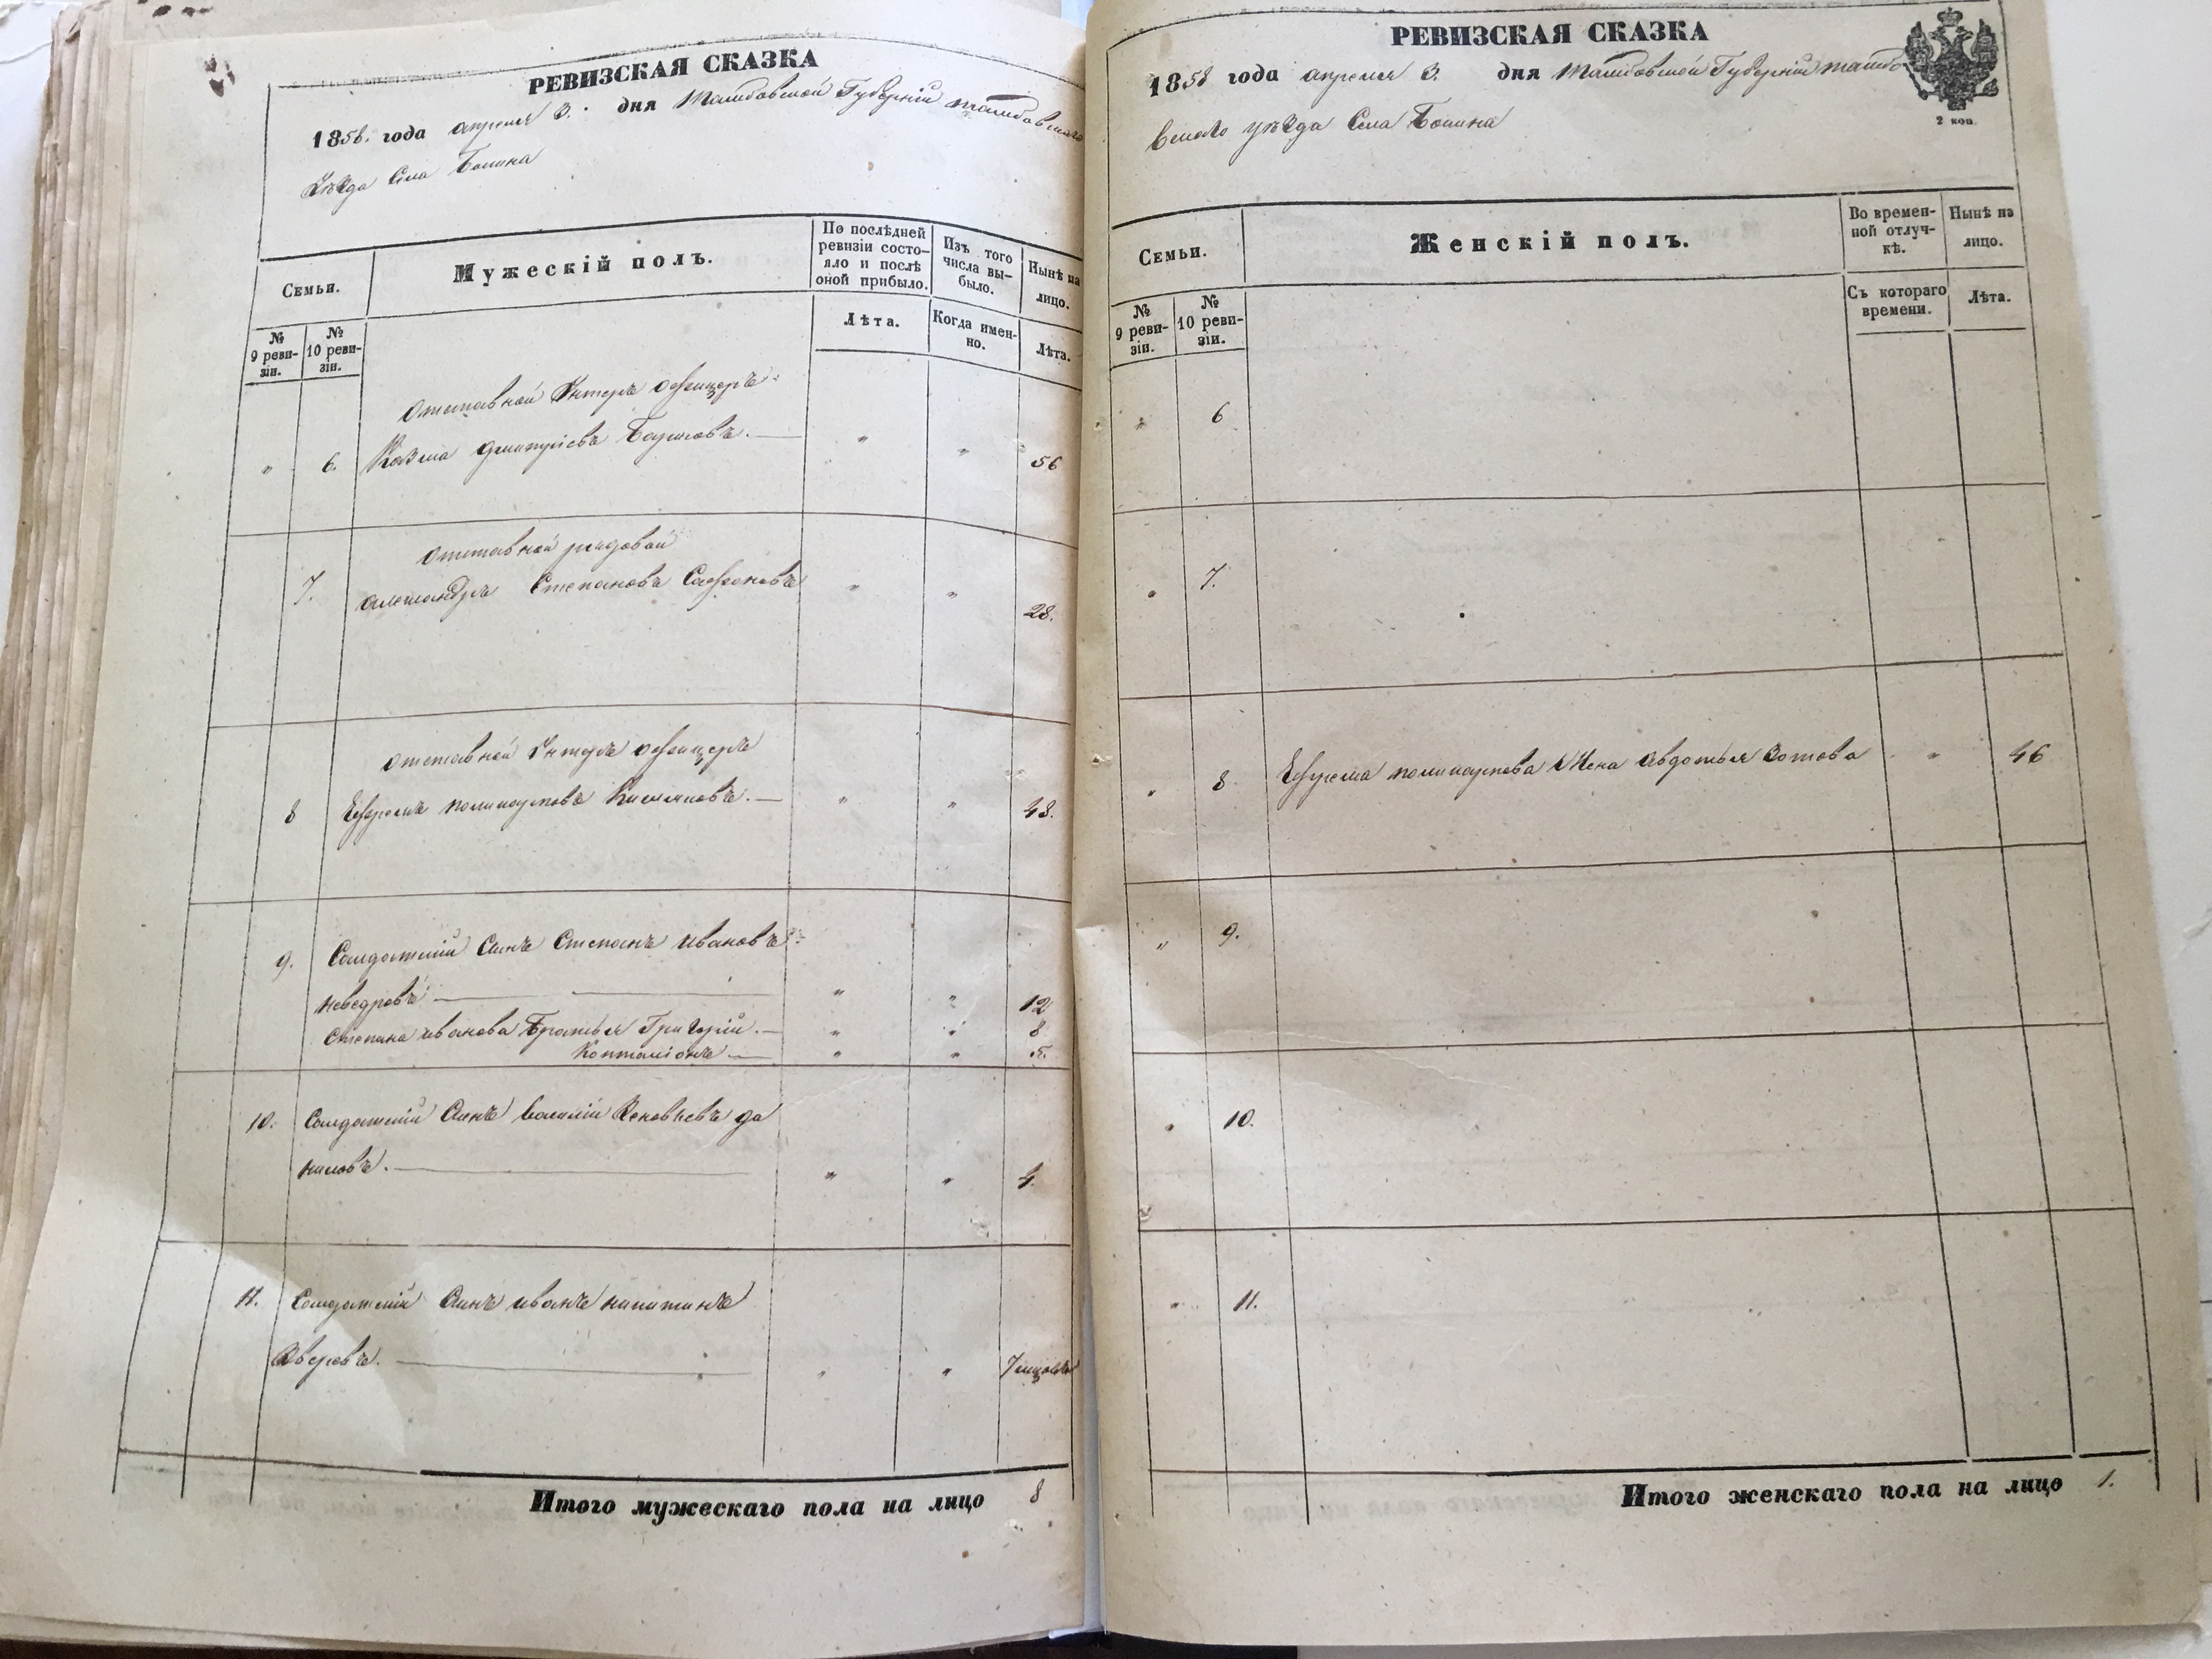 РЕВИЗСКАЯ СКАЗКА
1858. года апреля 3. дня Тамбовской Губерніи тамбовскаго
Уѣзда Села
Семьи.
Мужескій полъ.
По послѣдней ревизіи состояло и послѣ оной прибыло.
Изъ того числа выбыло.
Нынѣ на лицо.
№ 9 ревизіи.
№ 10 ревизіи.
Лѣта.
Когда именно.
Лѣта.
отставной Унтеръ офицеръ
„ 6. Казма дмитріевъ „ „ 56
отставной рядовой
7. александръ Степановъ Сафроновъ „ „ 28.
отставной Унтеръ офицеръ
8 Ефремъ поликарповъ „ „ 48.
9. Солдатскій Сынъ Степанъ ивановъ
неведровъ „ „ 12
Степана иванова Братья Григорій. „ „ 8
„ „ 5.
10. Солдатскій Сынъ Василій да
ниловъ. „ „ 4.
11. Солдатскій Сынъ иванъ никитинъ
„ „ 7
Итого мужескаго пола на лицо 8
РЕВИЗСКАЯ СКАЗКА
1858 года апреля 3. дня Тамбовской Губерніи тамбо
вскаго уѣзда Села
2 коп.
Семьи.
Женскій полъ.
Во временной отлучкѣ.
Нынѣ на лицо.
№ 9 ревизіи.
№ 10 ревизіи.
Съ котораго времени.
Лѣта.
„ 6
„ 7.
„ 8 Ефрема поликарпова Жена авдотья Зотова „ 46
„ 9.
„ 10.
„ 11.
Итого женскаго пола на лицо 1.